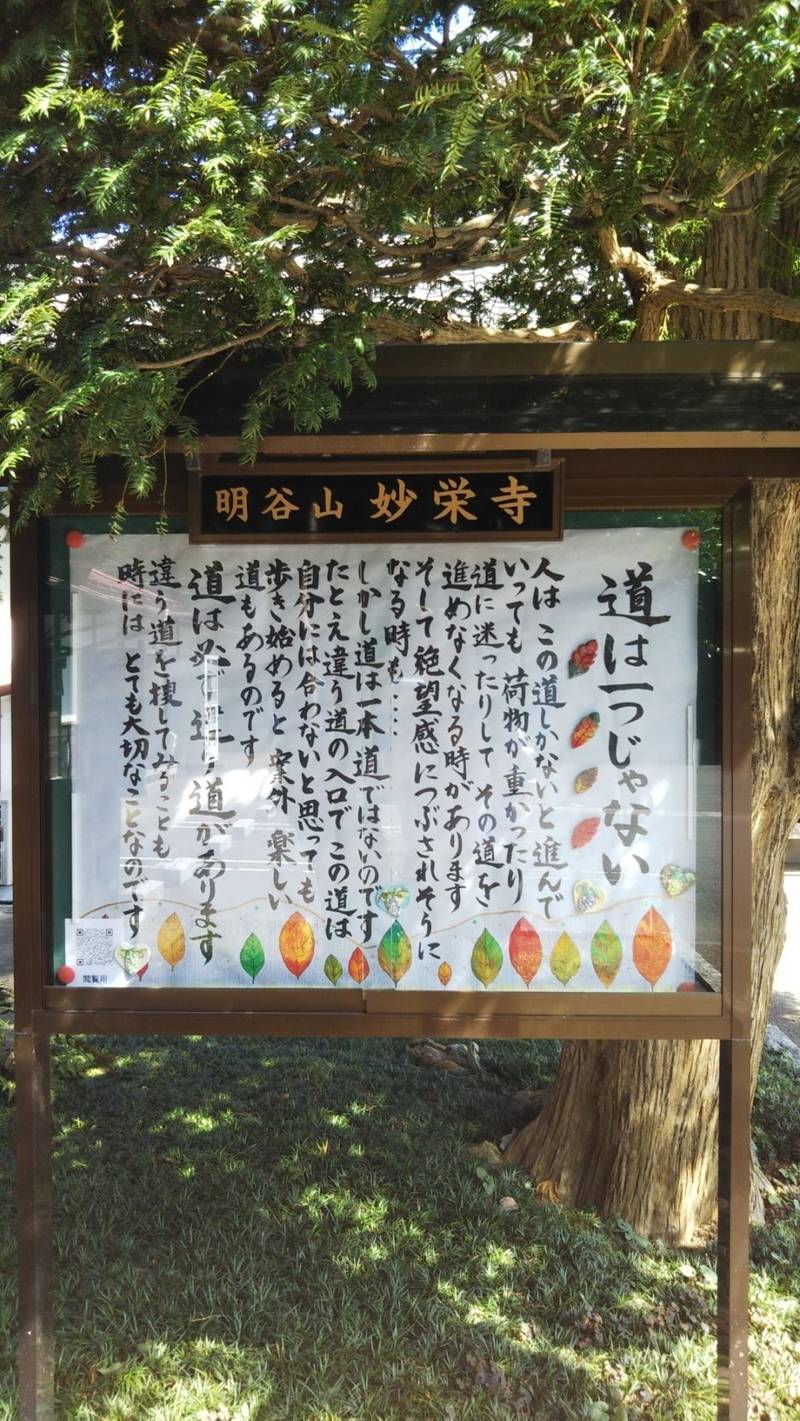 明谷山 妙栄寺
道は一つじゃない
人は この道しかないと進んで
いっても 荷物が重かったり
道に迷ったりして その道を
進めなくなる時があります
そして絶望感につぶされそうに
なる時も‥‥
しかし道は一本道ではないのです
たとえ違う道の入口で この道は
自分には合わないと思っても
歩き始めると 案外 楽しい
道もあるのです
道は必ず違う道があります
違う道を捜してみることも
時には とても大切なことなのです
閲覧用